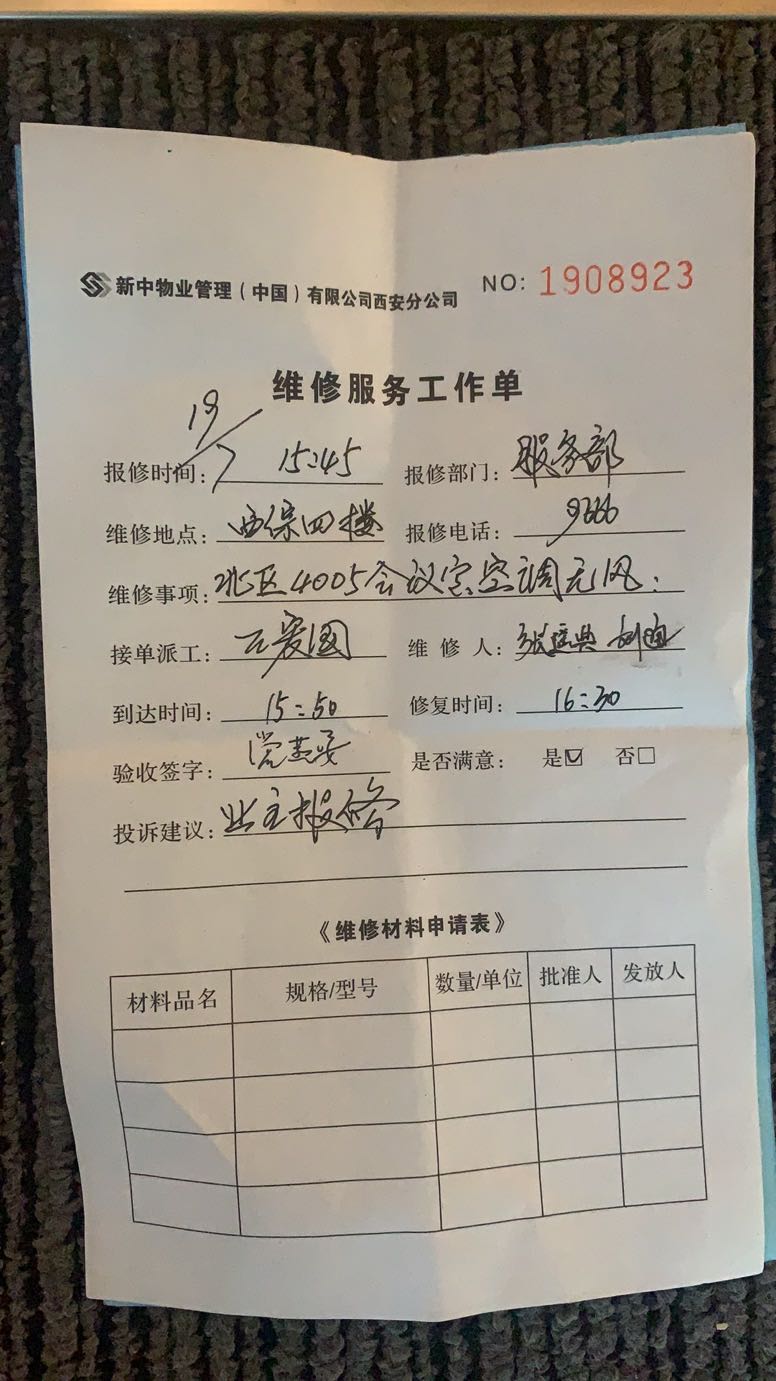 新中物业管理（中国）有限公司西安分公司 NO: 1908923
维修服务工作单
报修时间: 19/7 15:45 报修部门: 服务部
维修地点: 西综四楼 报修电话: 9666
维修事项: 北区4005会议室空调无风.
接单派工: 王爱国 维修人:
到达时间: 15:50 修复时间: 16:30
验收签字: 是否满意: 是☑ 否□
投诉建议: 业主报修
《维修材料申请表》
材料品名 规格/型号 数量/单位 批准人 发放人